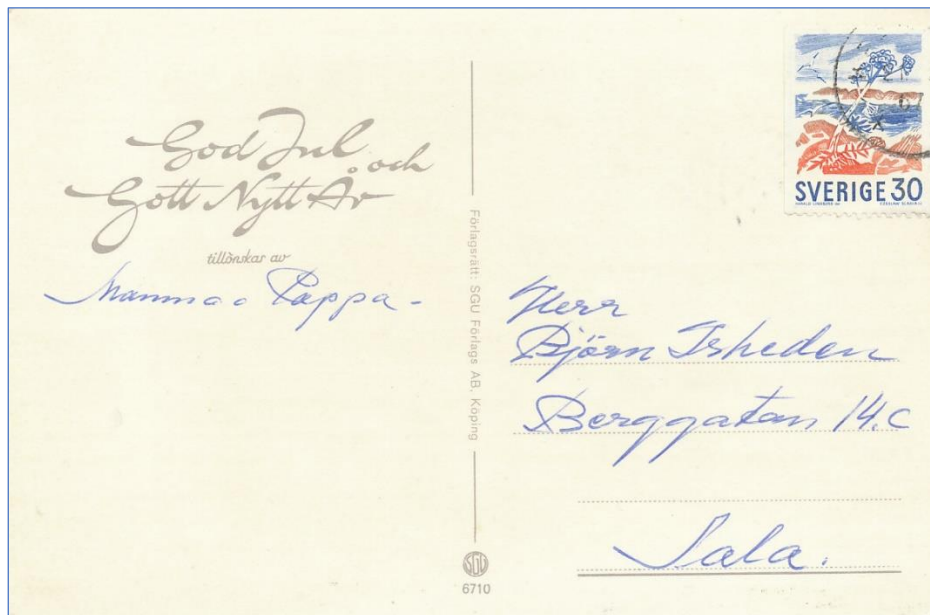 God Jul
och
Gott Nytt År
tillönskas av
Mamma o Pappa -
Förlagsrätt: SGU Förlags AB. Köping
SGU
6710
SVERIGE 30
Herr
Björn Isheden
Berggatan 14.C
Sala.